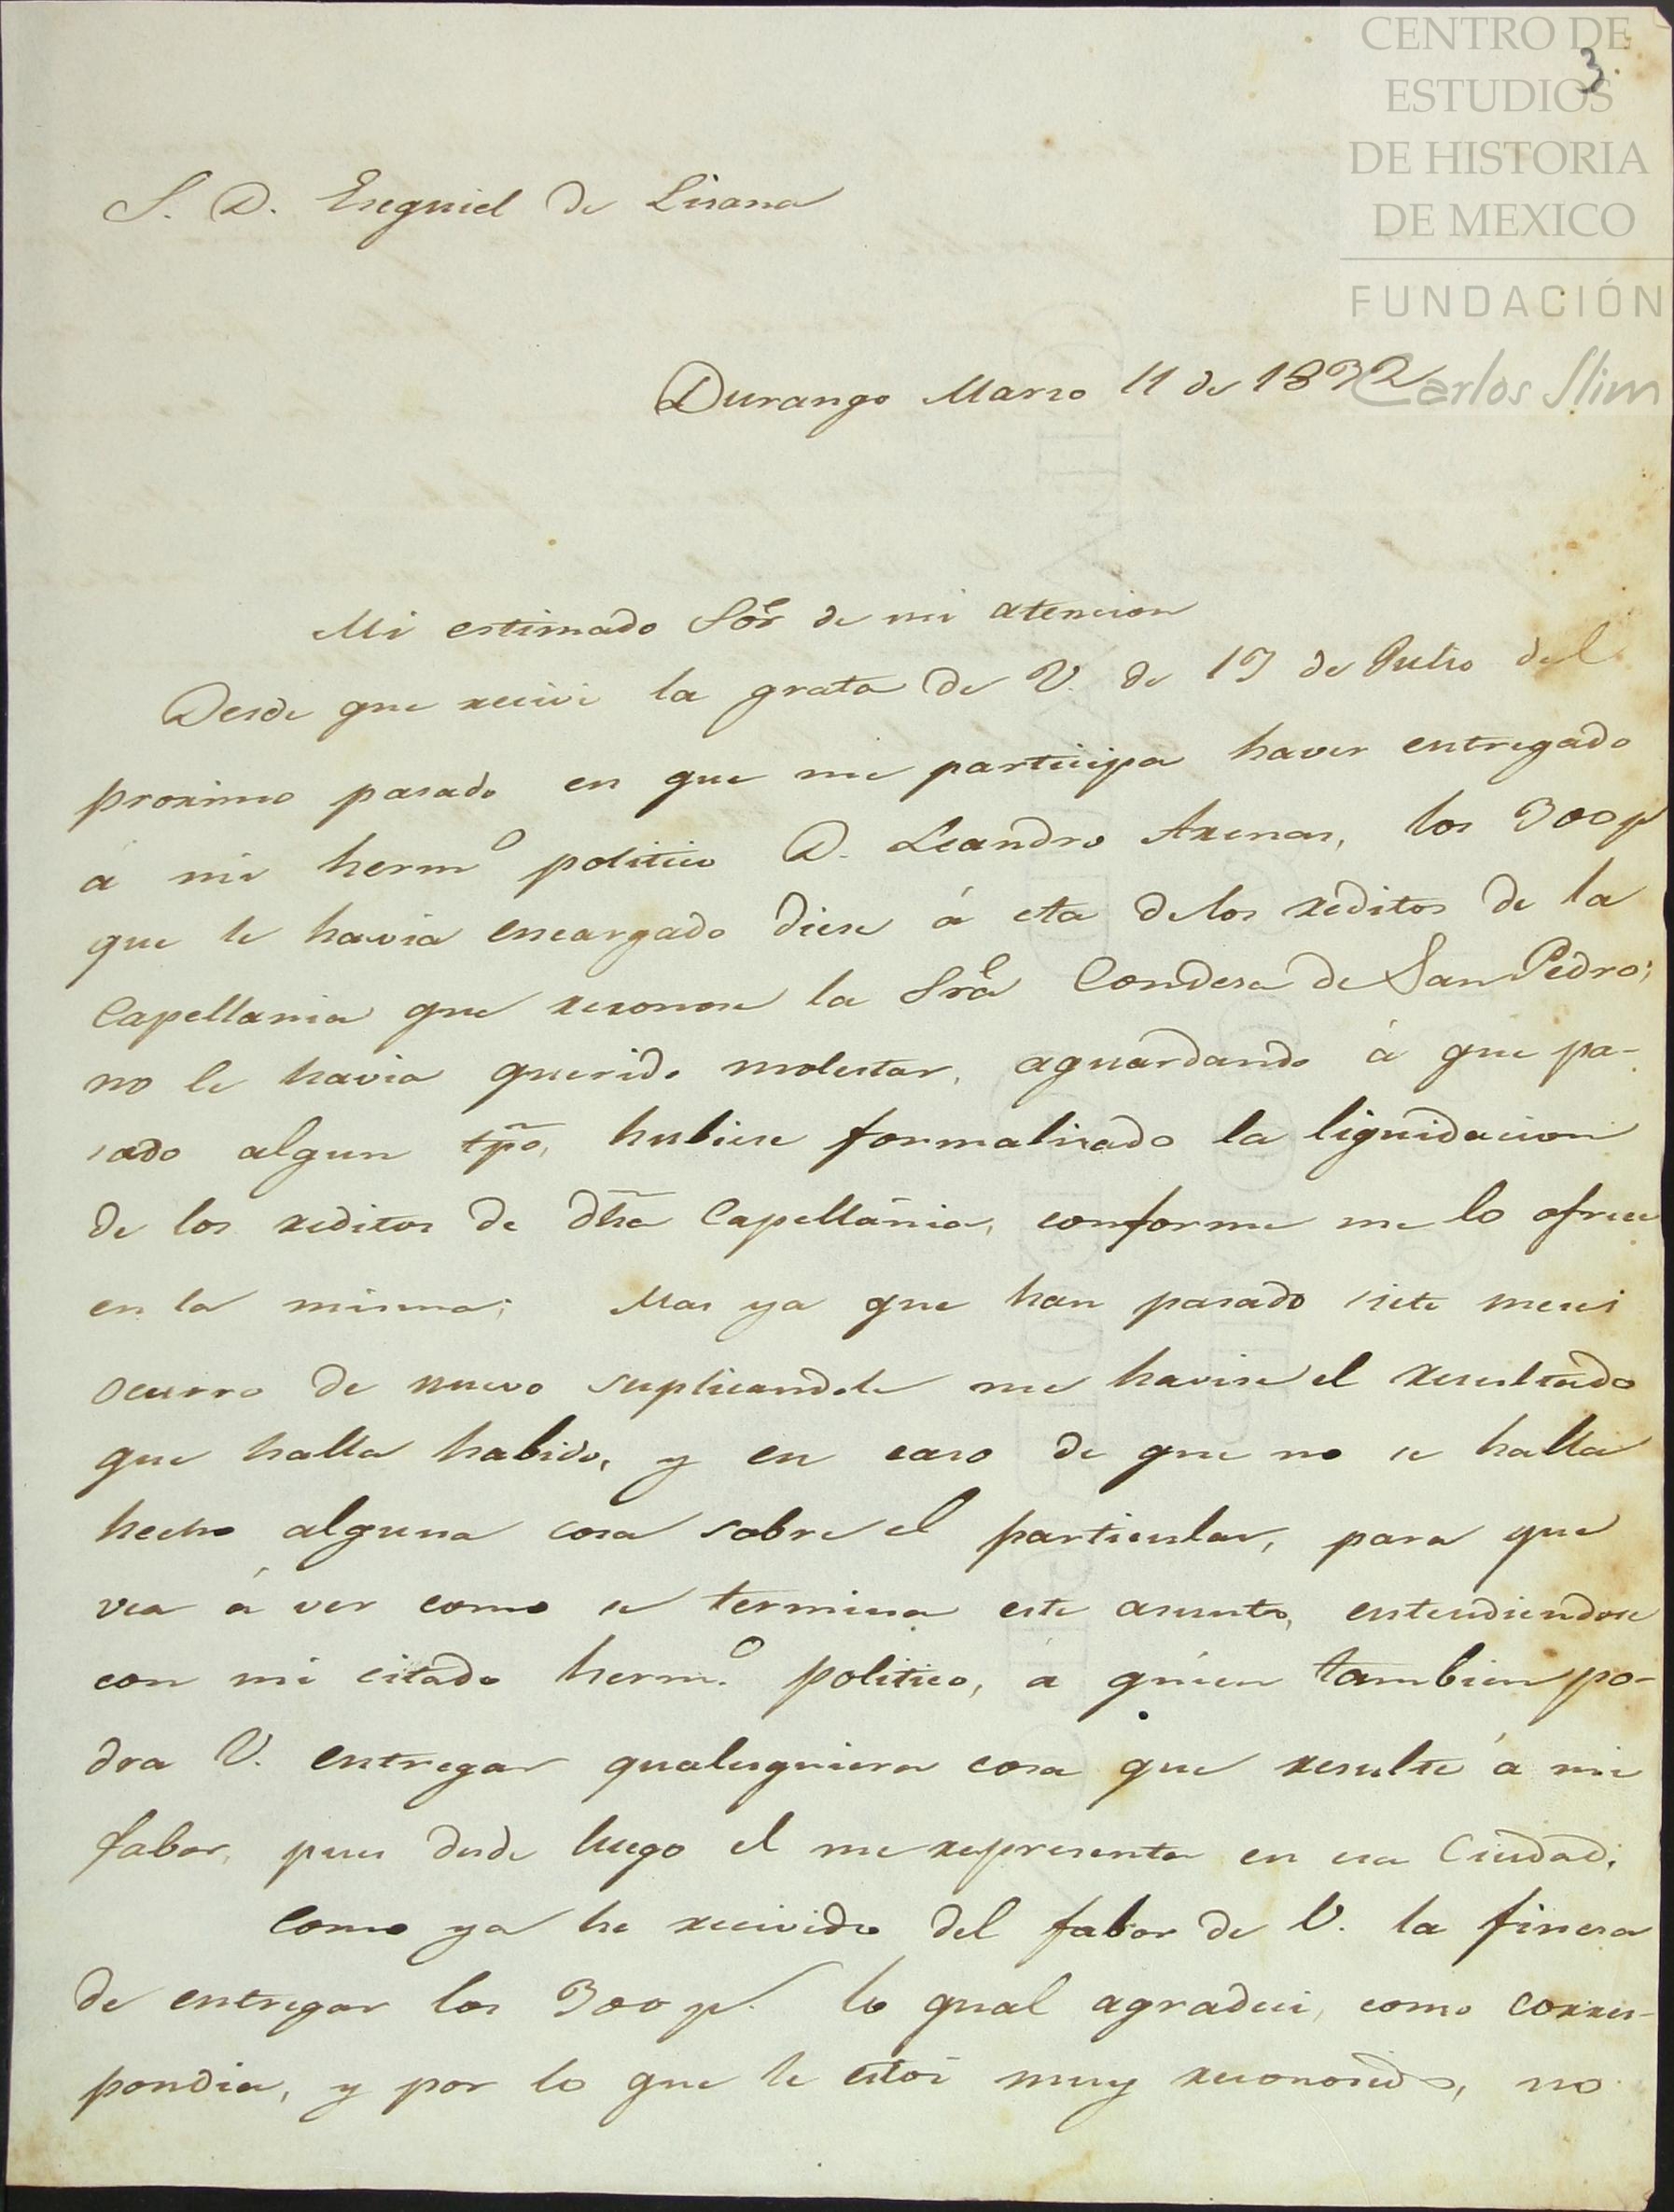 CENTRO DE
ESTUDIOS
DE HISTORIA
DE MEXICO
FUNDACIÓN
Carlos Slim
3.
S. D. Esequiel de Lisana
Durango Marso 11 de 1832
Mi estimado Sor̃ de mi atencion
Desde que recivi la grata de V. de 19 de Julio del
proximo pasado en que me participa haver entregado
á mi hermo politico D. Leandro Arenas, los 300 p
que le havia encargado diese á cta de los reditos de la
Capellania que reconose la Srã Condesa de San Pedro;
no le havia querido molestar, aguardando á que pa-
sado algun tpõ, hubiese formalisado la liquidacion
de los reditos de dha Capellania, conforme me lo ofrece
en la misma; Mas ya que han pasado siete meses
ocurro de nuevo suplicandole me havise el resultado
que halla habido, y en caso de que no se halla
hecho alguna cosa sobre el particular, para que
vea á ver como se termina este asunto, entendiendose
con mi citado herm.o politico, á quien tambien po-
dra V. entregar qualesquiera cosa que resulte á mi
fabor, pues desde luego el me representa en esa Ciudad.
Como ya he recivido del fabor de V. la finesa
de entregar los 300 p. lo qual agradeci, como corres-
pondia, y por lo que le estoi muy reconosido, no